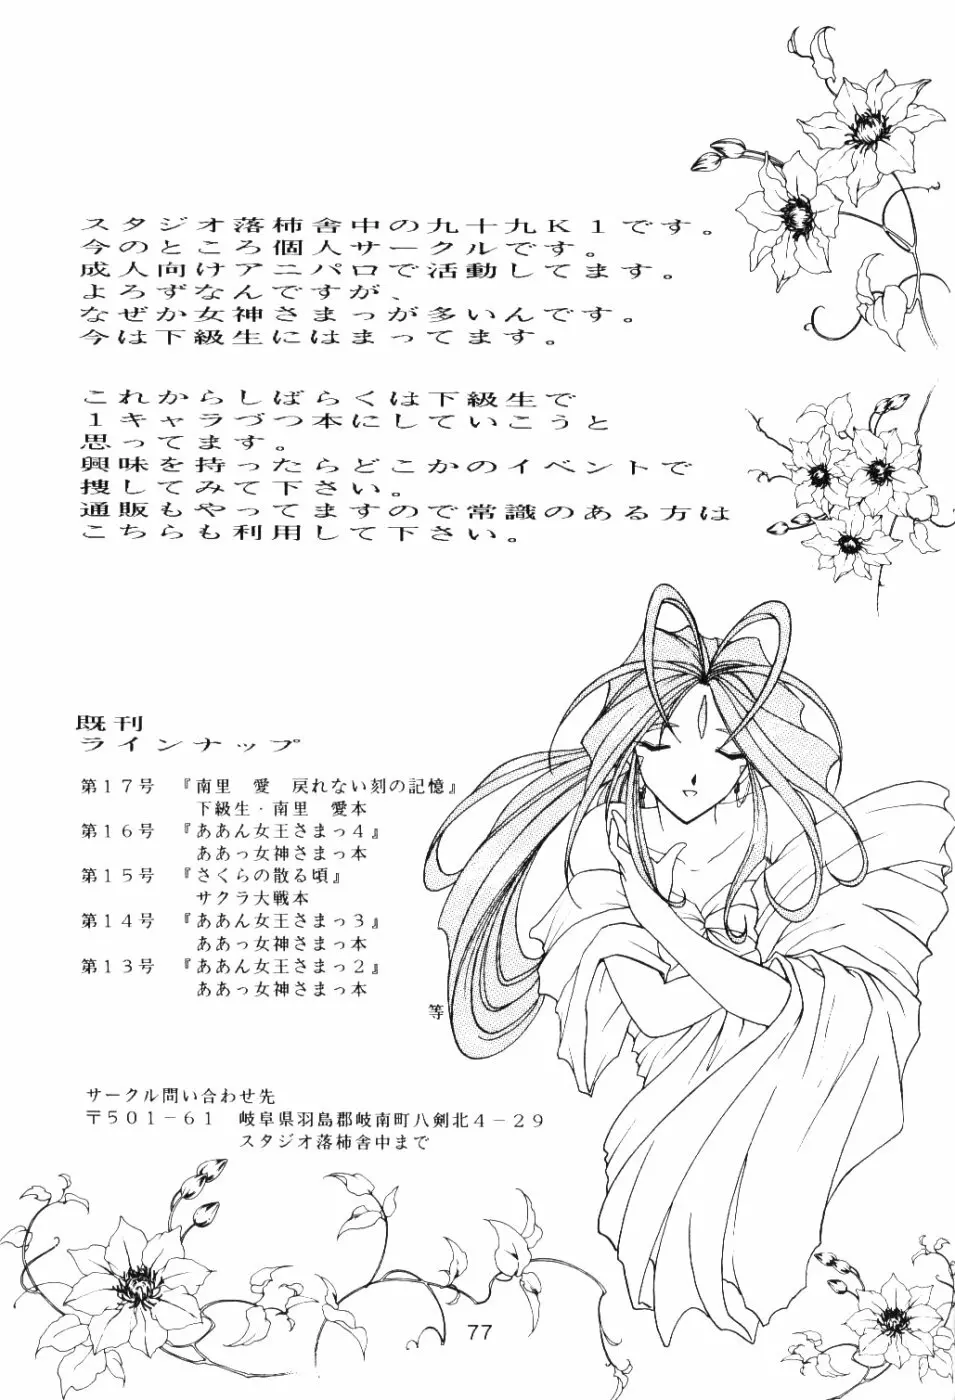 スタジオ落柿舎中の九十九K1です。
今のところ個人サークルです。
成人向けアニパロで活動してます。
よろずなんですが、
なぜか女神さまっが多いんです。
今は下級生にはまってます。
これからしばらくは下級生で
1キャラづつ本にしていこうと
思ってます。
興味を持ったらどこかのイベントで
捜してみて下さい。
通販もやってますので常識のある方は
こちらも利用して下さい。
既刊
ラインナップ
第17号 『南里 愛 戻れない刻の記憶』
下級生・南里 愛本
第16号 『ああん女王さまっ4』
ああっ女神さまっ本
第15号 『さくらの散る頃』
サクラ大戦本
第14号 『ああん女王さまっ3』
ああっ女神さまっ本
第13号 『ああん女王さまっ2』
ああっ女神さまっ本
等
サークル問い合わせ先
〒501-61 岐阜県羽島郡岐南町八剣北4-29
スタジオ落柿舎中まで
77